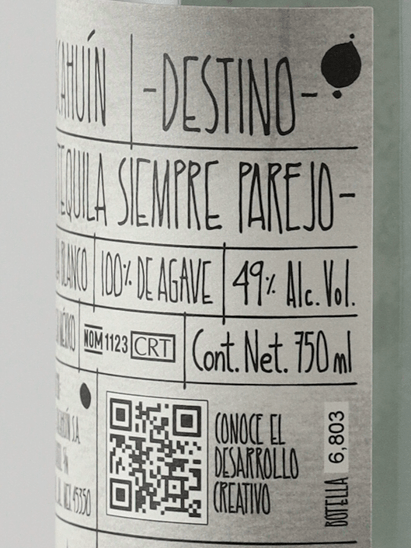 -DESTINO-
TEQUILA SIEMPRE PAREJO-
BLANCO 100% DE AGAVE 49% Alc. Vol.
NOM 1123 CRT Cont. Net. 750 ml
CONOCE EL
DESARROLLO
CREATIVO
BOTELLA 6,803
S.A.
MEX 45350